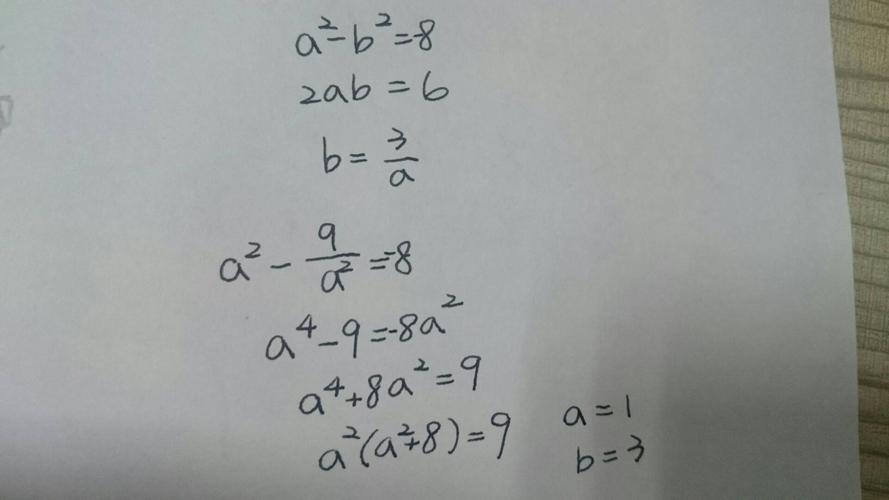 a²-b²=-8
2ab=6
b=3/a
a²-9/a²=-8
a⁴-9=-8a²
a⁴+8a²=9
a²(a²+8)=9
a=1
b=3